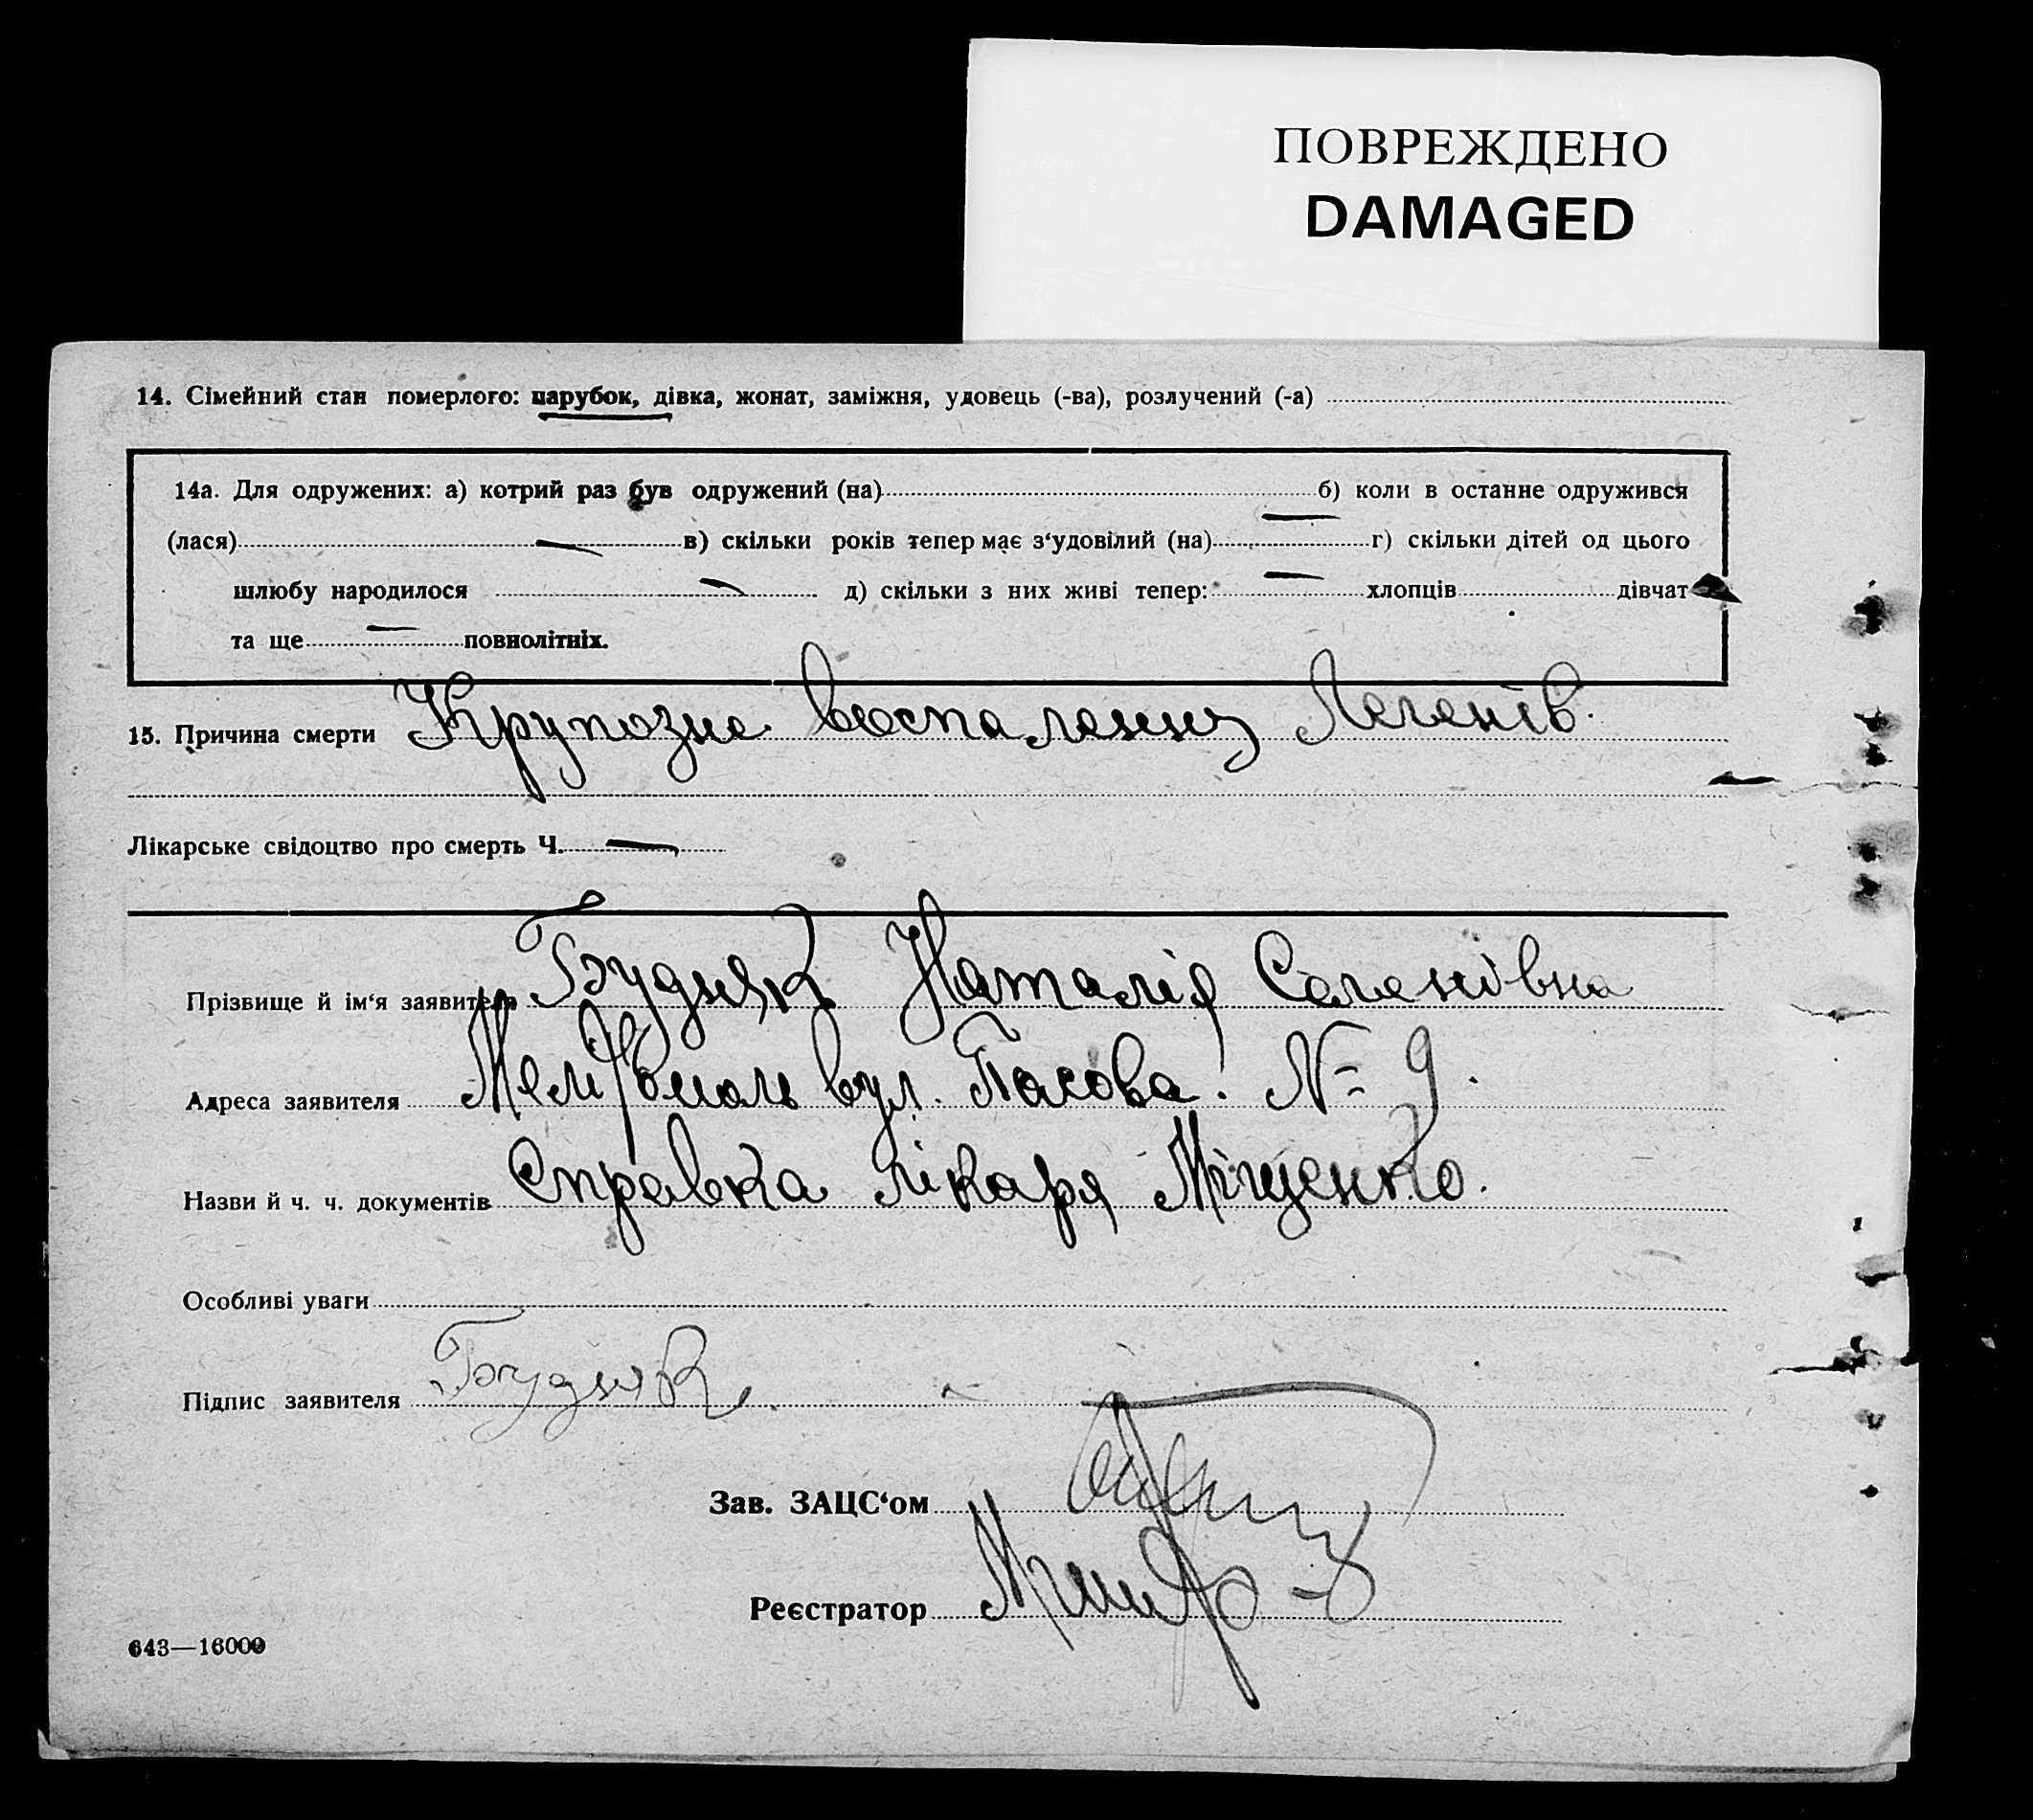 ПОВРЕЖДЕНО
DAMAGED
14. Сімейний стан померлого: парубок, дівка, жонат, заміжня, удовець (-ва), розлучений (-а)
14а. Для одружених: а) котрий раз був одружений (на) б) коли в останне одружився
(лася) в) скільки років тепер має з‘удовілий (на) г) скільки дітей од цього
шлюбу народилося д) скільки з них живі тепер: хлопців дівчат
та ще повнолітніх.
15. Причина смерти Крупозне воспалення Легенів.
Лікарське свідоцтво про смерть Ч.
Прізвище й ім‘я заявителя Будняк Наталія
Адреса заявителя вул. № 9.
Назви й ч. ч. документів Справка лікаря Міщенко.
Особливі уваги
Підпис заявителя Будняк
Зав. ЗАЦС‘ом
Реєстратор
643—16000